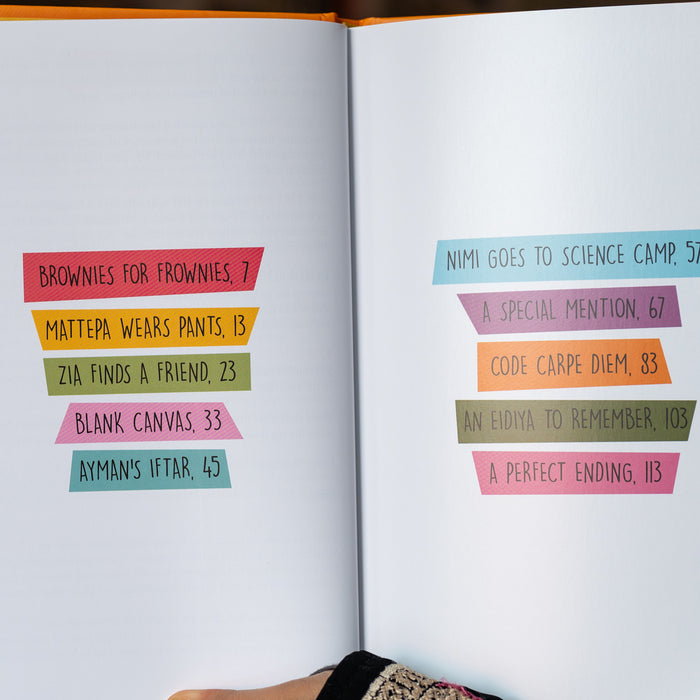 BROWNIES FOR FROWNIES, 7
MATTEPA WEARS PANTS, 13
ZIA FINDS A FRIEND, 23
BLANK CANVAS, 33
AYMAN'S IFTAR, 45
NIMI GOES TO SCIENCE CAMP, 57
A SPECIAL MENTION, 67
CODE CARPE DIEM, 83
AN EIDIYA TO REMEMBER, 103
A PERFECT ENDING, 113